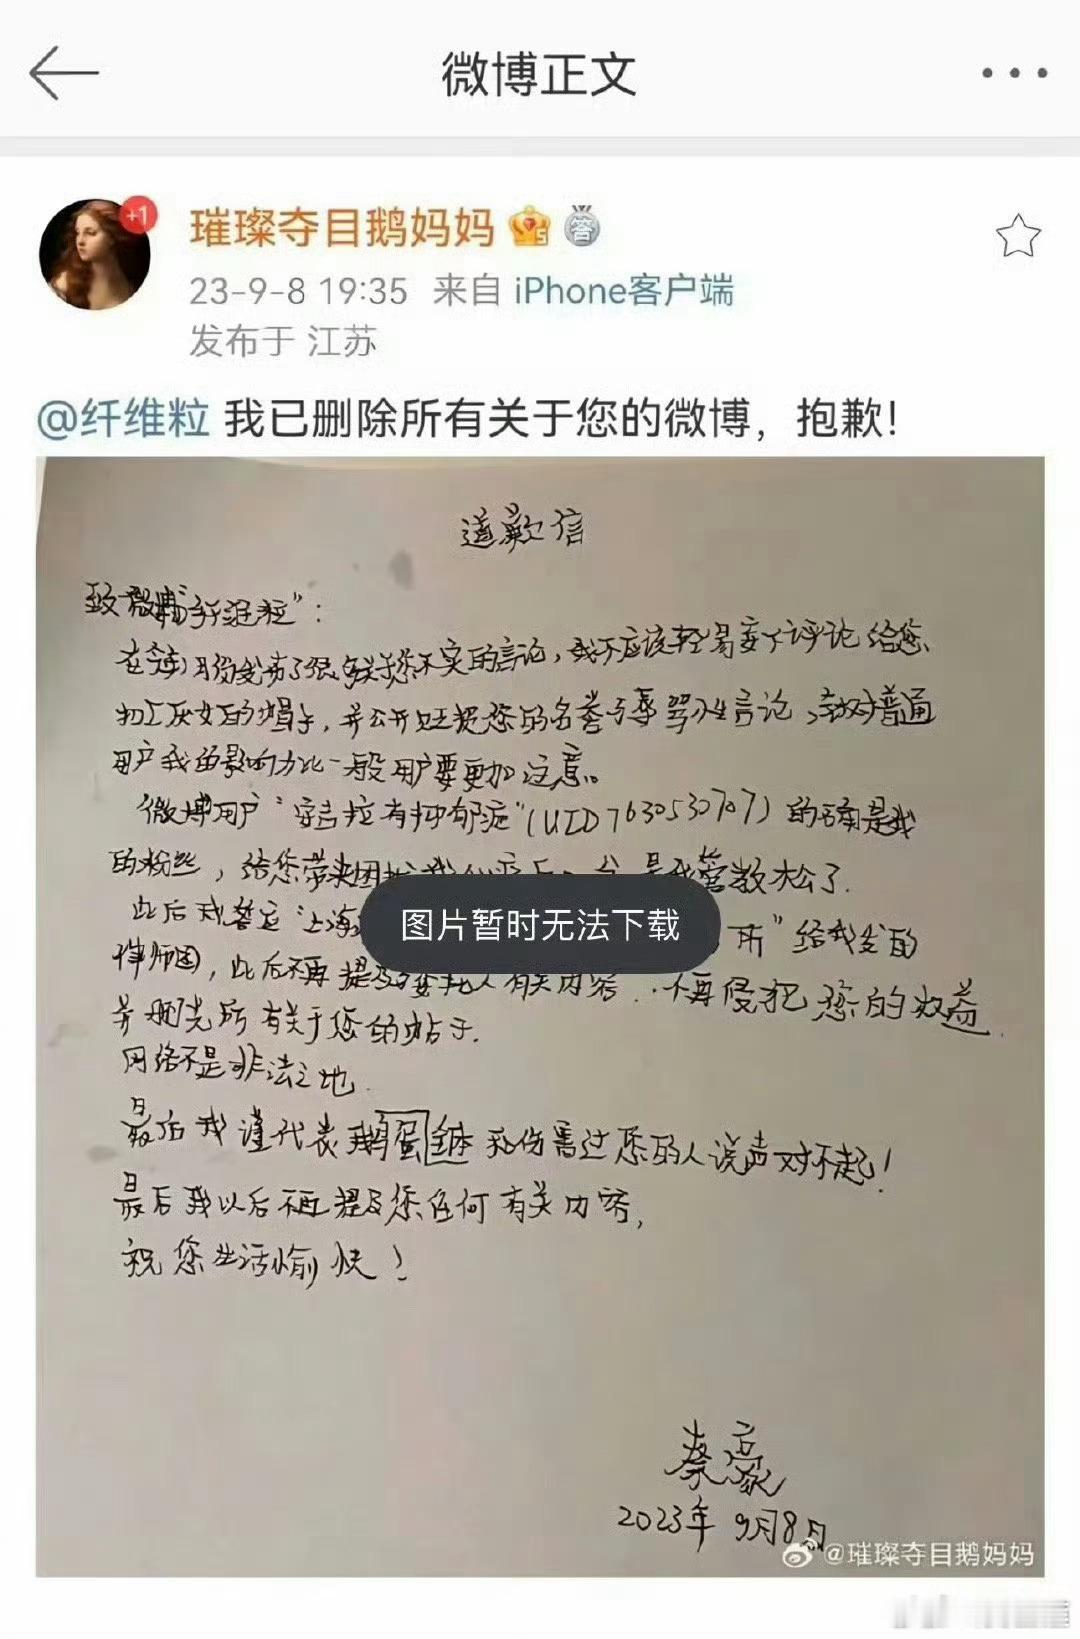 微博正文
+1
璀璨夺目鹅妈妈
23-9-8 19:35 来自 iPhone客户端
发布于 江苏
@纤维粒 我已删除所有关于您的微博，抱歉!
道歉信
致微博"纤维粒"：
发布了很多关于您不实的言论，我不应该轻易妄下评论给您
扣上厌女的帽子，并公开侵犯您的名誉与辱骂性言论，较对普通
用户我的影响力比一般用户要更加注意。
微博用户"安吉拉有抑郁症"(UID7630530707)的确是我
的粉丝，给您带来困扰 是我管教松了.
此后我 "上海 所"给我发的
律师函，此后不再提及委托人有关内容. 不再侵犯您的权益
并删光所有关于您的帖子.
网络不是非法之地.
最后我谨代表鹅蛋 和伤害过您的人说声对不起!
最后我以后不再提及您任何有关内容，
祝您生活愉快!
图片暂时无法下载
蔡豪
2023年9月8日
@璀璨夺目鹅妈妈